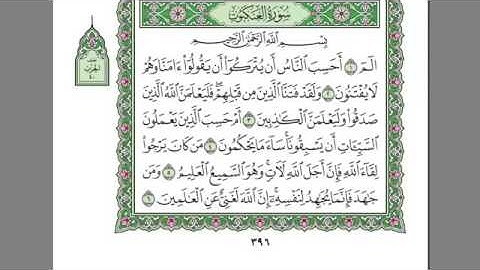 سُورَةُ العَنكَبُوتِ
بِسْمِ اللَّهِ الرَّحْمَٰنِ الرَّحِيمِ
الٓمٓ ١ أَحَسِبَ ٱلنَّاسُ أَن يُتْرَكُوٓا۟ أَن يَقُولُوٓا۟ ءَامَنَّا وَهُمْ
لَا يُفْتَنُونَ ٢ وَلَقَدْ فَتَنَّا ٱلَّذِينَ مِن قَبْلِهِمْ فَلَيَعْلَمَنَّ ٱللَّهُ ٱلَّذِينَ
صَدَقُوا۟ وَلَيَعْلَمَنَّ ٱلْكَٰذِبِينَ ٣ أَمْ حَسِبَ ٱلَّذِينَ يَعْمَلُونَ
ٱلسَّيِّـَٔاتِ أَن يَسْبِقُونَا سَآءَ مَا يَحْكُمُونَ ٤ مَن كَانَ يَرْجُوا۟
لِقَآءَ ٱللَّهِ فَإِنَّ أَجَلَ ٱللَّهِ لَـَٔاتٍ وَهُوَ ٱلسَّمِيعُ ٱلْعَلِيمُ ٥ وَمَن
جَٰهَدَ فَإِنَّمَا يُجَٰهِدُ لِنَفْسِهِۦٓ إِنَّ ٱللَّهَ لَغَنِىٌّ عَنِ ٱلْعَٰلَمِينَ ٦
٣٩٦